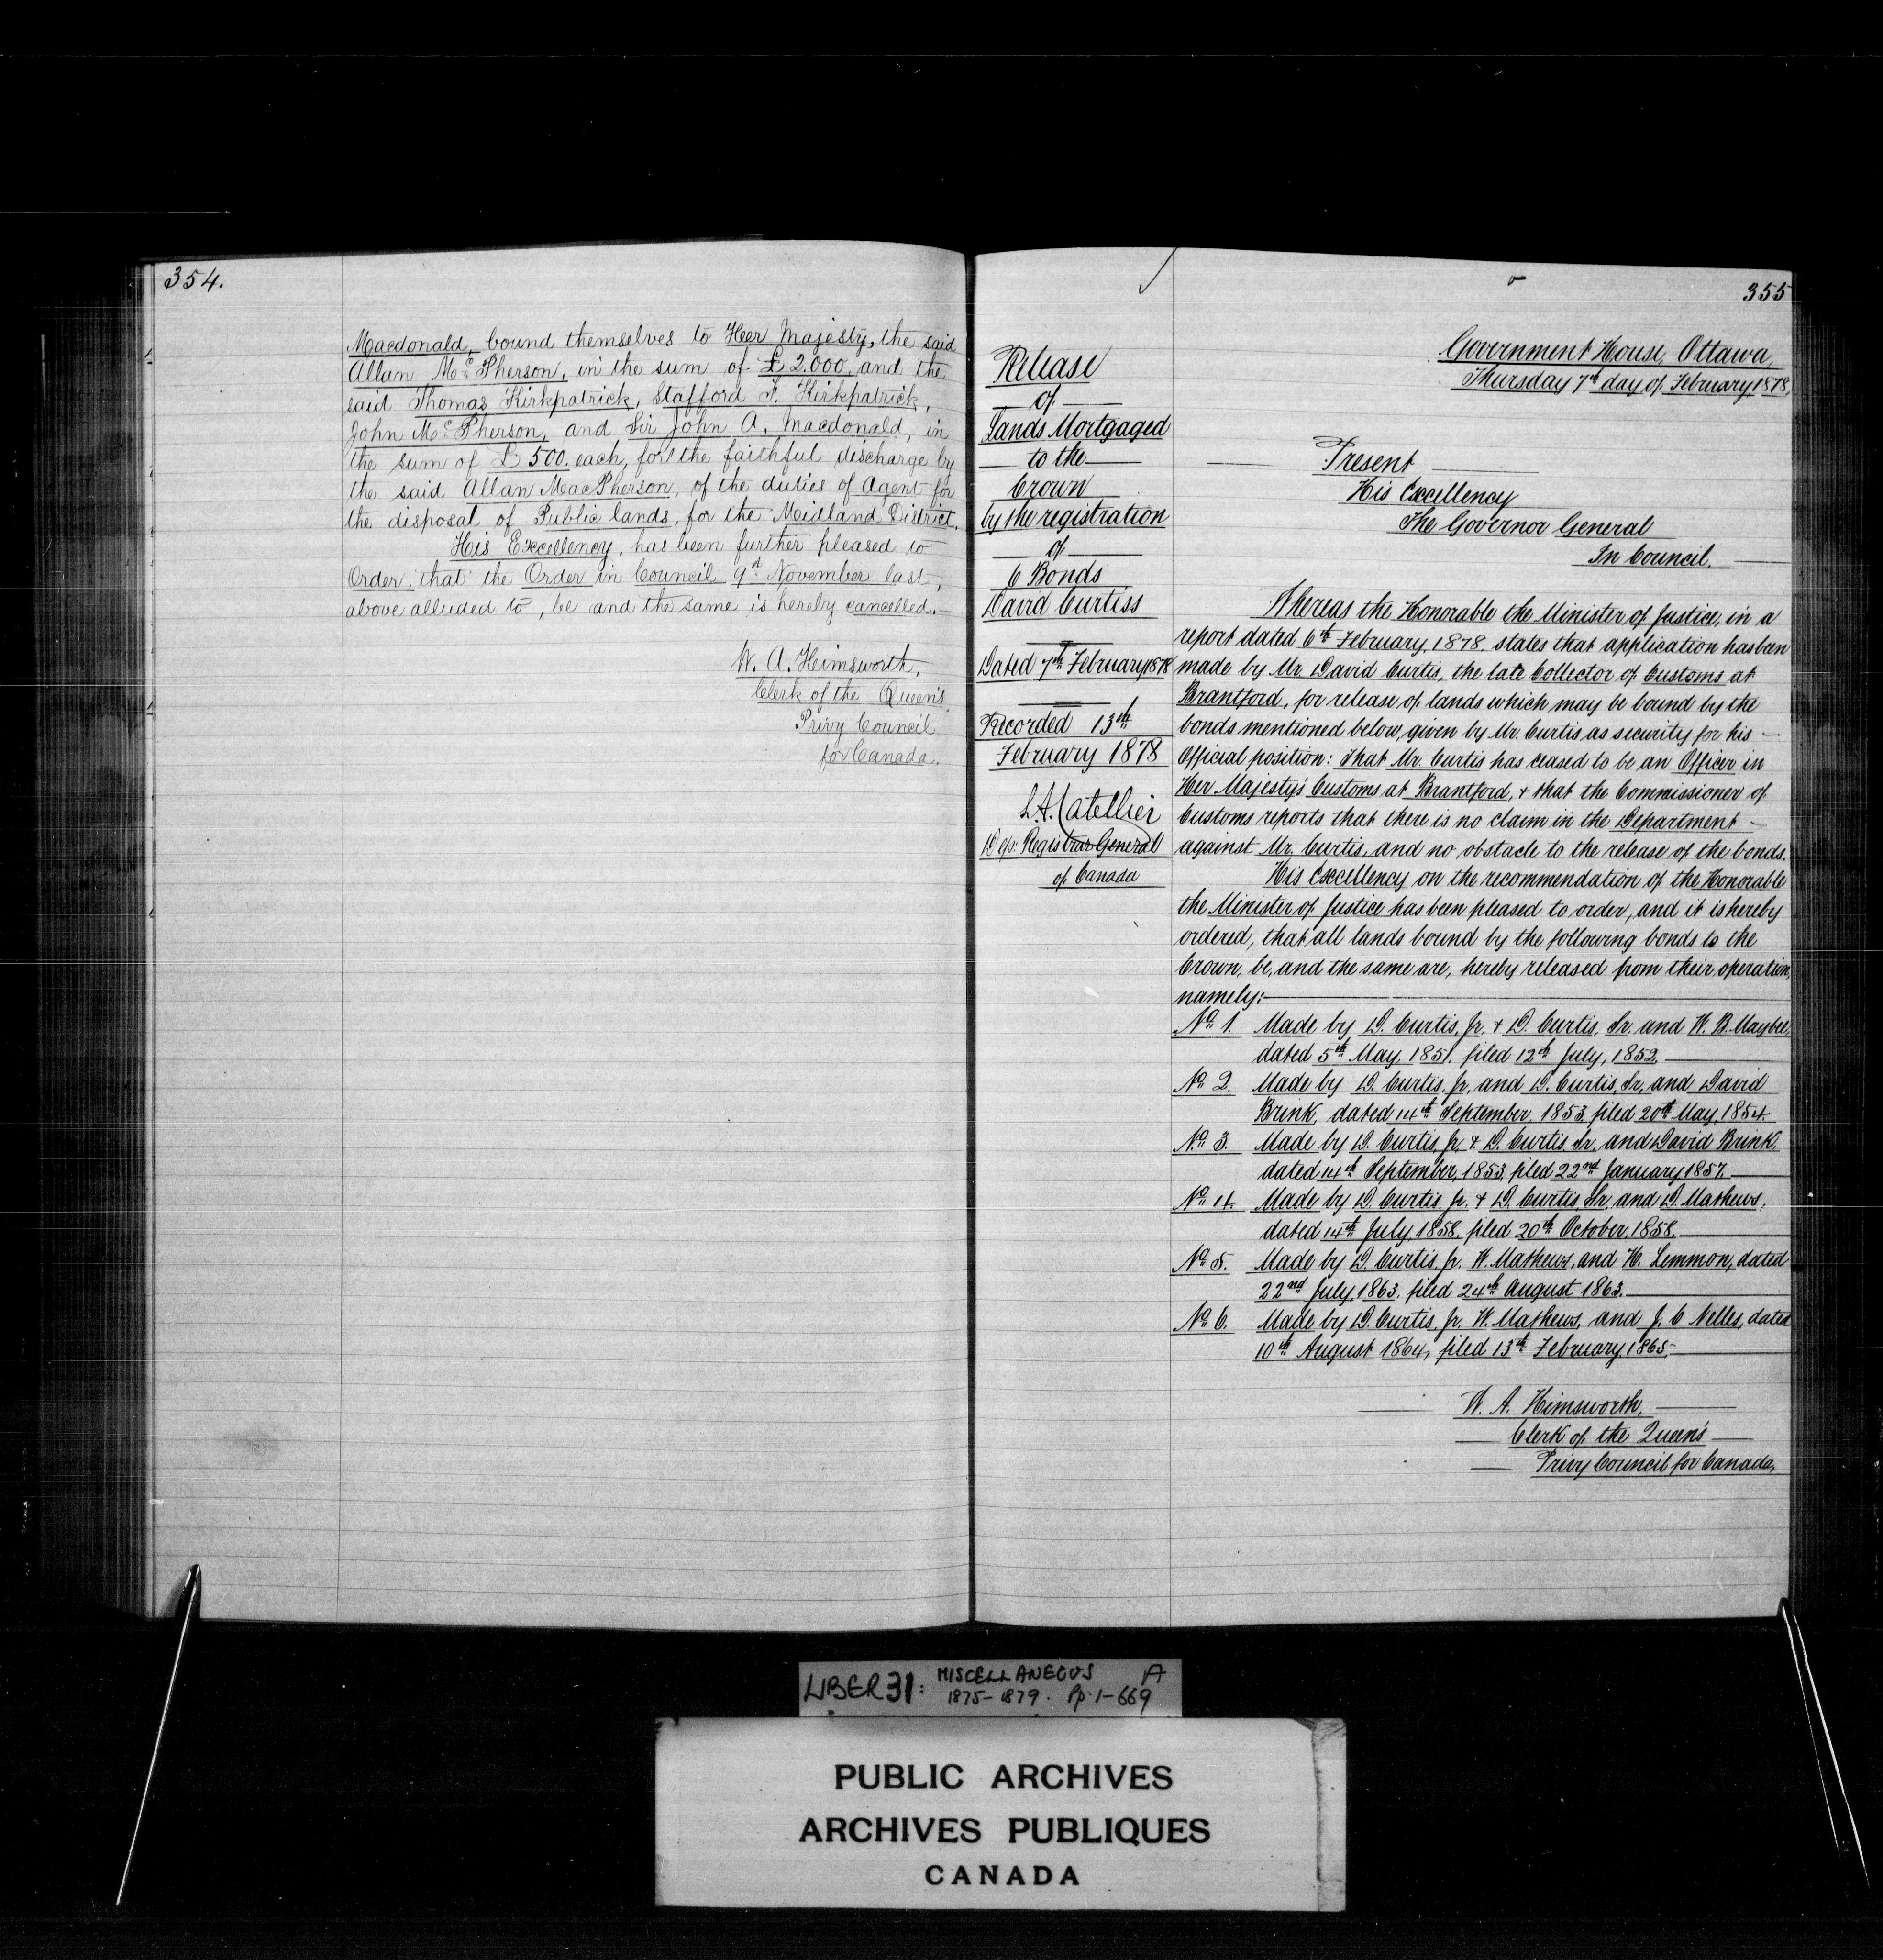 354.
Macdonald, bound themselves to Heer Majesty, the said
Allan Mc Pherson, in the sum of £2.000, and the
said Thomas Kirkpatrick, Stafford F. Kirkpatrick,
John Mc Pherson, and Sir John A. Macdonald, in
the sum of £500. each, for the faithful discharge by
the said Allan MacPherson, of the duties of Agent for
the disposal of Public lands, for the Midland District.
His Excellency, has been further pleased to
Order, that the Order in Council 9th November last,
above alluded to, be and the same is hereby cancelled.
W. A. Himsworth,
Clerk of the Queen's
Privy Council
for Canada.
355
Release
of
Lands Mortgaged
to the
Crown
by the registration
of
6 Bonds
David Curtiss
Dated 7th February 1878
Recorded 13th
February 1878
L.A. Catellier
Dep. Registrar General
of Canada
Government House, Ottawa,
Thursday 7th day of February 1878,
Present
His Excellency
The Governor General
In Council.
Whereas the Honorable the Minister of Justice, in a
report dated 6th February, 1878 states that application has been
made by Mr. David Curtis, the late Collector of Customs at
Brantford, for release of lands which may be bound by the
bonds mentioned below, given by Mr. Curtis as security for his
Official position: That Mr. Curtis has ceased to be an Officer in
Her Majesty's Customs at Brantford, & that the Commissioner of
Customs reports that there is no claim in the Department
against Mr. Curtis, and no obstacle to the release of the bonds.
His Excellency on the recommendation of the Honorable
the Minister of Justice has been pleased to order, and it is hereby
ordered, that all lands bound by the following bonds to the
Crown, be, and the same are, hereby released from their operation,
namely:
No. 1. Made by D. Curtis, Jr. & D. Curtis, Sr. and W. B. Maybee,
dated 5th May, 1851. filed 12th July, 1852.
No. 2. Made by D. Curtis, Jr, and D. Curtis, Sr, and David
Brink, dated 14th September, 1853, filed 20th May, 1854.
No. 3. Made by D. Curtis, Jr, & D. Curtis Sr. and David Brink.
dated 14th September, 1853, filed 22nd January 1857.
No. 4. Made by D. Curtis, Jr. & D. Curtis, Sr, and D. Mathews,
dated 14th July, 1858, filed 20th October, 1858.
No. 5. Made by D. Curtis, Jr. W. Mathews, and H. Lemmon, dated
22nd July, 1863. filed 24th August 1863.
No. 6. Made by D. Curtis, Jr. W. Mathews, and J. C Nelles, dated
10th August 1864, filed 13th February, 1865.
W. A. Himsworth,
Clerk of the Queen's
Privy Council for Canada,
LIBER 31: MISCELLANEOUS A
1875-1879. Pp. 1-669
PUBLIC ARCHIVES
ARCHIVES PUBLIQUES
CANADA